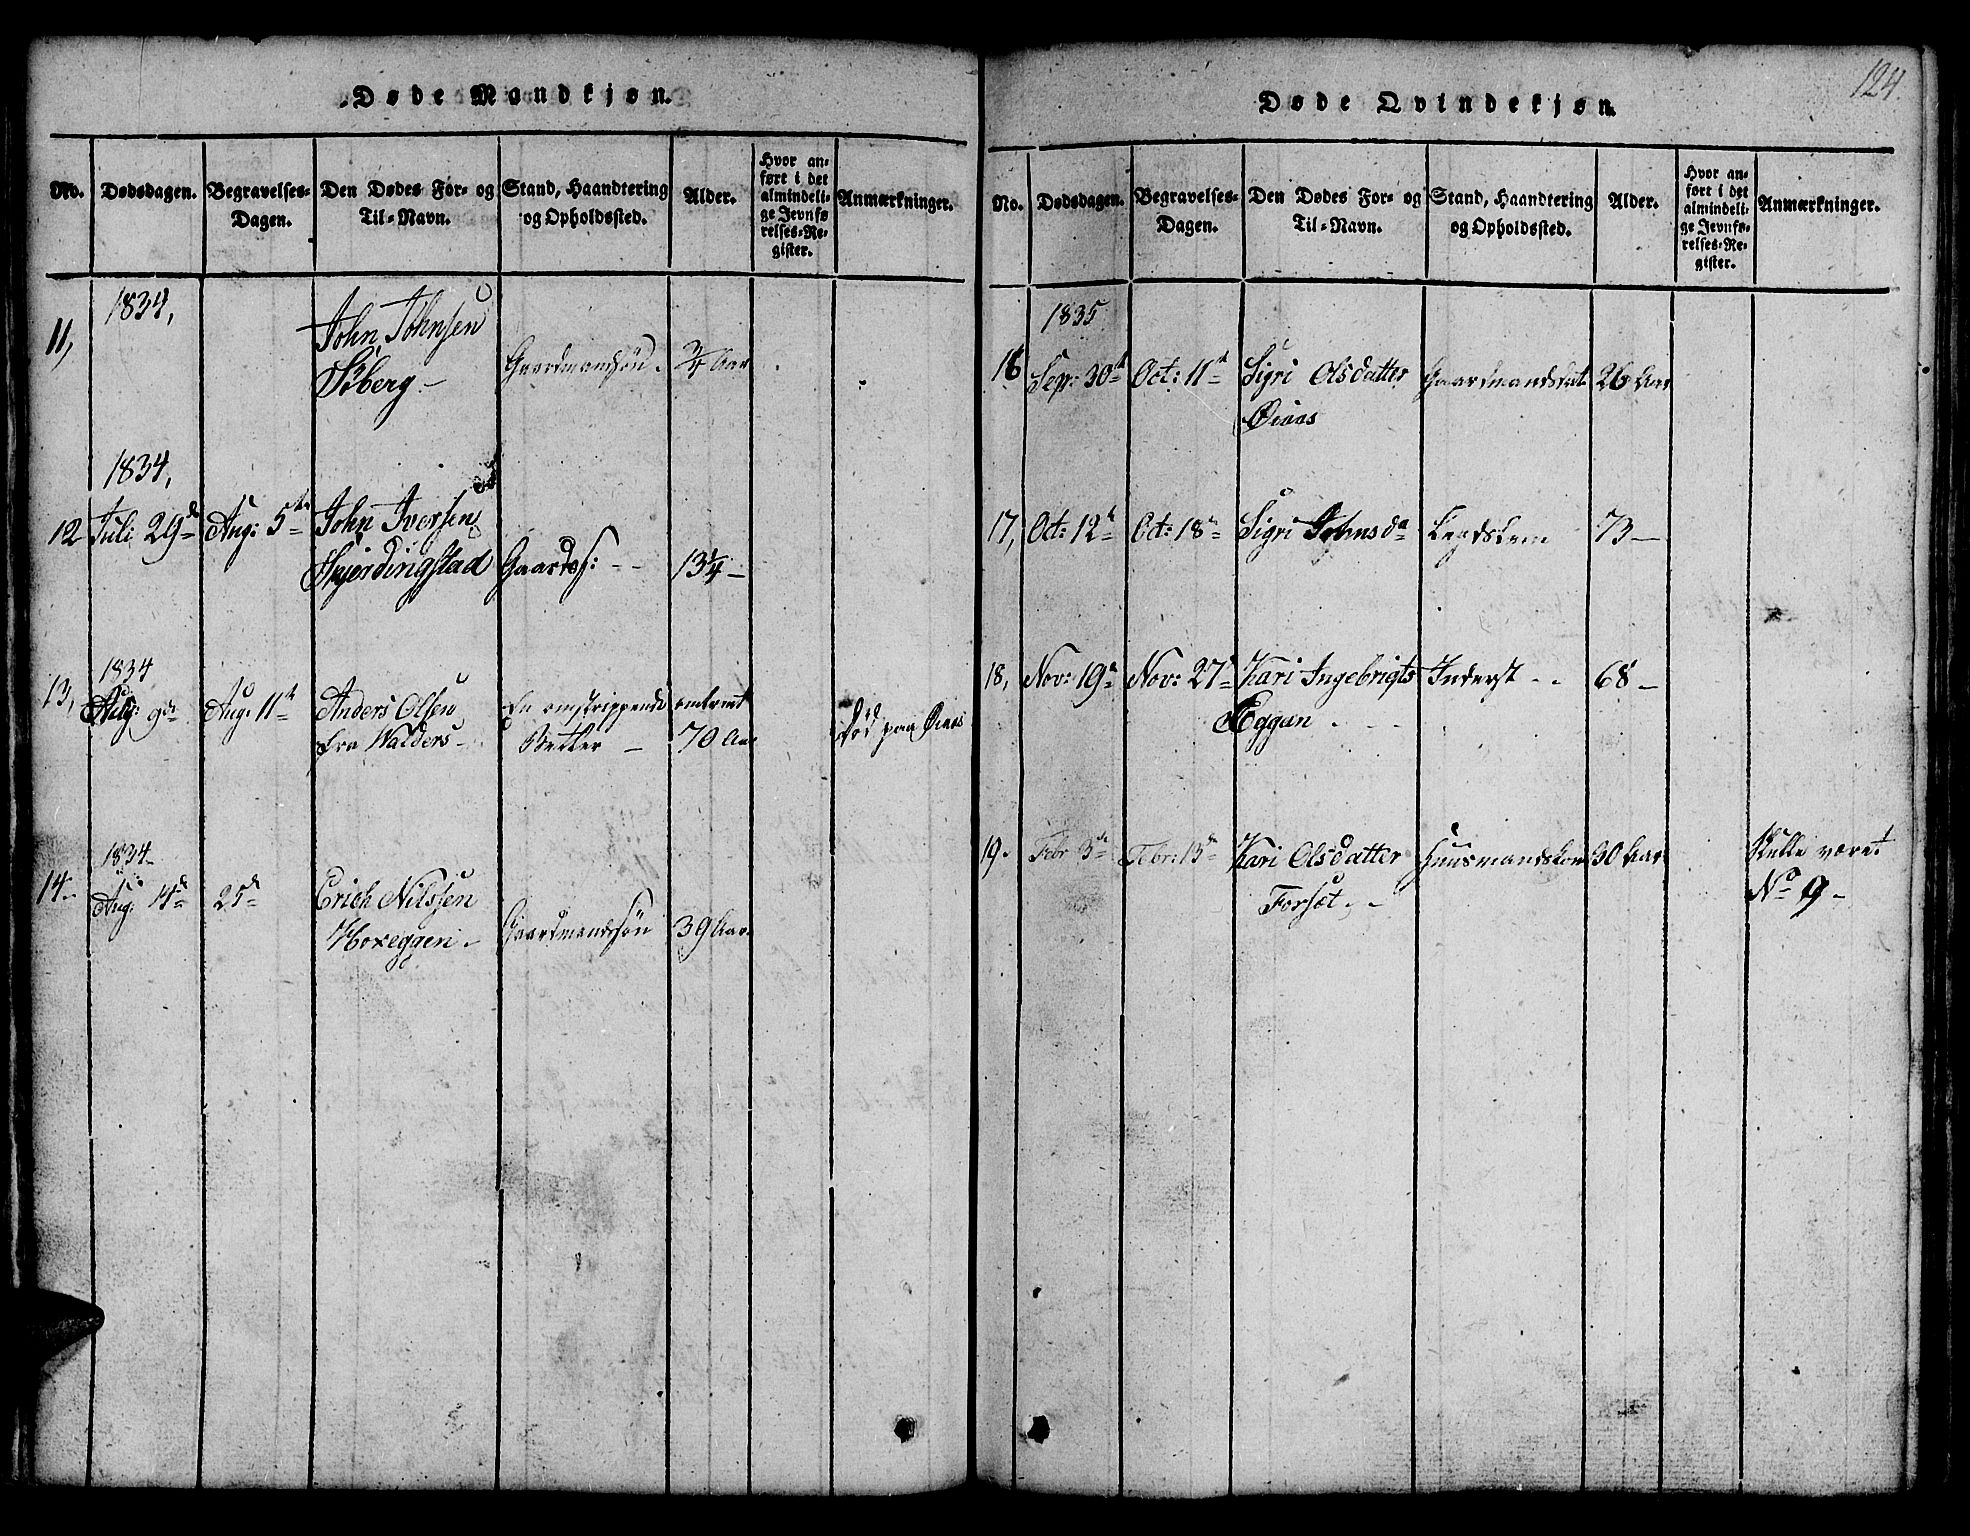 Døde Mandkjøn.
No. Dødsdagen. Begravelses-Dagen. Den Dødes For- og Til-Navn. Stand, Haandtering og Opholdssted. Alder. Hvor anført i det almindelige Jevnførelses-Register. Anmærkninger.
1834,
11, John Johnsen
Søberg - Gaardmandssøn. 3/4 Aar
1834,
12 Juli 29de Aug: 5te John Iversen
Skjerdingstad Gaards: - - 13 1/4 -
1834
13, Aug: 9de Aug: 11te Anders Olsen En omstrippende omtrent
fra Walders - Betler - 70 Aar Død paa Øiaas
1834
14. Aug: 14de 25de Erich Nilssen
Hoxeggen - Gaardmandssøn 39 Aar.
124.
Døde Qvindekjøn.
No. Dødsdagen. Begravelses-Dagen. Den Dødes For- og Til-Navn. Stand, Haandtering og Opholdssted. Alder. Hvor anført i det almindelige Jevnførelses-Register. Anmærkninger.
1835
16 Sep: 30te Oct: 11te Sigri Olsdatter Gaardmandsdat 26 Aar
Øiaas
17, Oct: 12te Oct: 18de Sigri Johnsda Legdslem 73 -
18, Nov: 19de Nov: 27de Kari Ingebrigts Inderst - - 68 -
Eggan
19. Febr 3de Febr: 15de Kari Olsdatter Huusmandskone 30 Aar Skulle været
Forset - - No 9 -